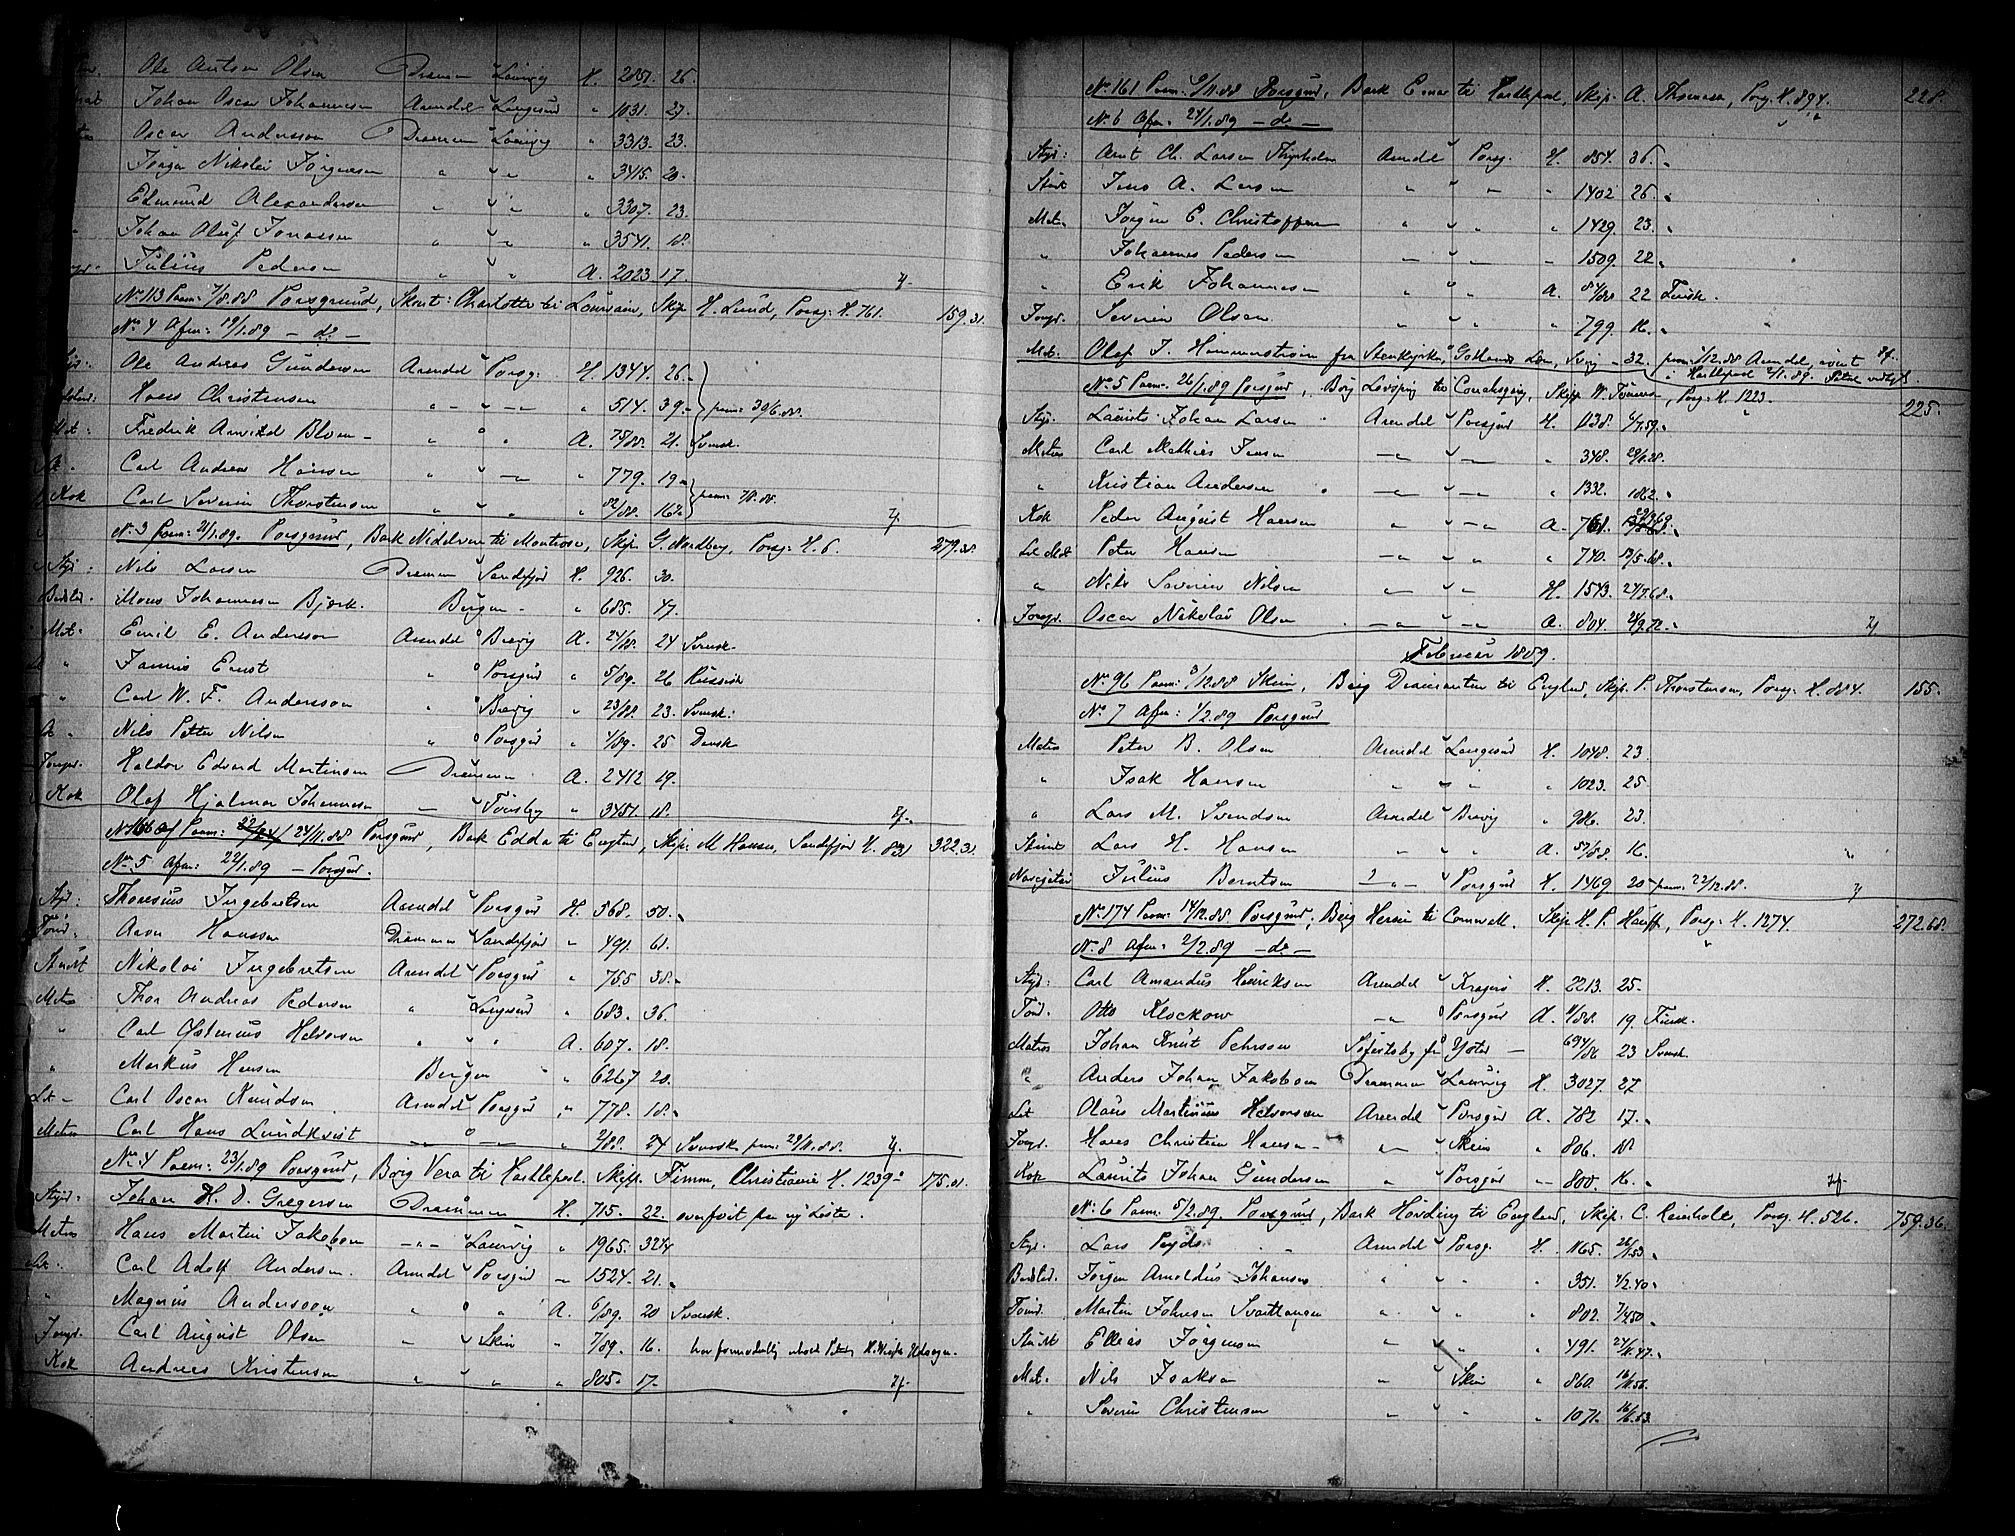 Ole Antson Olsen Drammen Laurvig H. 2851. 26.
Johan Oscar Johannesen Arendal Langesund " 1031. 27.
Oscar Andersson Drammen Laurvig " 3313. 23.
Jørgen Nikolai Jørgensen " " " 3415. 20.
Edmund Alexandersen " " " 3307. 23.
Johan Oluf Jonassen " " " 3541. 18.
Julius Pedersen " " A. 2023. 17.
No 113 Paam: 7/8.88 Porsgrund, Skont: Charlotte til Louvain, Skip. H. Lund, Porsg: H. 761. 159.31.
No 4 Afm: 19/1.89 - do -
Ole Andreas Gundersen Arendal Porsg. H. 1344. 26.
Hans Christensen " " " 514. 39. paam: 30/6.88.
Mat. Fredrik Arvid Blom " " A. 75/88. 21. Svensk.
Carl Andreas Hansen " " " 779. 19.
Kok Carl Severin Thorstensen " " " 82/88. 16½ paam: 7/8.88.
No 3 paam: 21/1.89. Porsgrund, Bark Nidelven til Montrose, Skip. G. Nordberg, Porsg: H. 6. 279.38.
Styr: Nils Larsen Drammen Sandefjord H. 926. 30.
Mons Johannesen Bjørk. Bergen " 685. 47.
Mat. Emil E. Andersson Arendal Brevig A. 24/88. 24 Svensk.
" James Ernst " Porsgrd " 5/89. 26 Russisk
" Carl W. F. Andersson " Brevig " 23/88. 23. Svensk.
Nils Peter Nilsen " Porsgrd " 4/89. 25 Dansk
Jungm. Haldor Edvard Martinsen Drammen A. 2412 19.
Kok Olaf Hjalmar Johannesen " Tønsbg " 3451. 18.
No 166 af Paam: 24/11.88 Porsgrund, Bark Edda til England, Skip: M. Hansen, Sandefjor H. 831. 322.31.
No 5 Afm: 22/1.89 - Porsgrd.
Styr: Thoresius Ingebretsen Arendal Porsgrd H. 568. 50.
Tøm. Aron Hansson Drammen Sandefjord " 491. 61.
Nikolai Ingebretsen Arendal Porsgrd " 755 38.
Matr. Thor Andreas Pedersen " Langesund " 683. 36.
" Carl Halvorsen " " A. 607. 18.
" Markus Hansen Bergen " 6267 20.
Let " Carl Oscar Knudsen Arendal Porsgrd " 778. 18.
Matr. Carl Hans Lundkvist " " " 2/88. 24 Svensk paam: 29/11.88.
No 4 Paam: 23/1.89 Porsgrund, Brig Vera til Hartlepool. Skip. Fimm, Christiania H. 1239. 175.01.
Styr. Johan H. D. Gregersen Drammen H. 715. 22. overført fra ny Liste.
Matr. Hans Martin Jakobsen " Laurvig " 1965. 32¾
Let. Carl Adolf Andersen. Arendal Porsgrd " 1524. 21.
" Magnus Andersson " " A. 6/89. 20 Svensk.
Jungm. Carl August Olsen " Skien " 7/89. 16.
Kok Andreas Kristensen " " " 805. 17.
No 161 Paam: 9/11.88 Porsgrund, Bark Einar til Hartlepool, Skip. A. Thomesen, Porsg. H. 894. 228.
No 6 Afm: 24/1.89 - do -
Styr: Arnt Ch. Larsen Arendal Porsg. H. 854. 36.
Jens A. Larsen " " " 1402 26.
Matr. Jørgen E. Christoffersen " " " 1429. 23.
" Johannes Pedersen " " " 1509. 22.
" Erik Johannesen " " A. 84/88. 22 Finsk.
Jungm. Severin Olsen " " " 799. 16.
Mat. Olof J. Hammerstrøm fra Stenkyrka, Gotlands Län, Sverig - 32. paam: 5/12.88 Arendal, rømt
i Hartlepool 2/1.89.
No 5 Paam: 26/1.89 Porsgrund, Brig Løvspring til Skip. Porsg. H. 1223. 225.
Styr. Laurits Johan Larsen Arendal Porsgrd H. 1138.
Matros Carl Mathias Jensen " " " 348.
" Kristian Andersen " " " 1332. 1862.
Kok Peder August Hansen " " A. 761.
Let Mat Peter Hansen " " " 740. 19/5.68.
" Nils Severin Nilsen " " H. 1543. 24/7.68.
Jungm. Oscar Nikolai Olsen " " A. 804.
Februar 1889.
No 96 Paam: 3/12.88 Skien, Brig Diamanten til England, Skip. P. Thorstensen, Porsg. H. 884. 155.
No 7 Afm: 1/2.89 Porsgrund
Matros Peter B. Olsen Arendal Langesund H. 1048. 23
" Isak Hansen " " " 1023. 25
" Lars M. Svendsen Arendal Brevig " 986. 23.
Lars H. Hansen " " A. 57/88. 16.
Julius Berntsen " Porsgrd H. 1469 20 paam: 22/12.88.
No 174 Paam: 14/12.88 Porsgrund, Brig til Cornwall. Skip. H. P. Hauff, Porsg. H. 1274. 272.68.
No 8 Afm: 2/2.89 - do -
Styr: Carl Amandus Henriksen Arendal Kragerø H. 2213. 25.
Tøm. Otto Klockow " Porsgrd A. 4/88. 19. Finsk.
Matros Johan Knut Pehrsson fra Ystad - 694/86 23 Svensk.
" Anders Johan Jakobsen Drammen Laurvig H. 3027. 27.
Let Olaus Martinius Halvorsen Arendal Porsgrd A. 782 17.
Jungm. Hans Christian Hansen " Skien " 806. 18
Kok Laurits Johan Gundersen " Porsgrd " 800. 16.
No 6 Paam: 5/2.89. Porsgrund, Bark Høvding til England, Skip. C. Reinholt, Porsg. H. 526. 759.36.
Styr. Lars Arendal Porsg. H. 1165. 26/1.53.
Bedstm. Jørgen Arnoldus Johansen " " " 351. 4/2.40.
Tømd. Martin Johnsen Svarthaugen " " " 802.
Ellias Jørgensen " " " 491.
Mat. Nils Isaksen " Skien " 860.
" Severin Christensen " " " 1071.